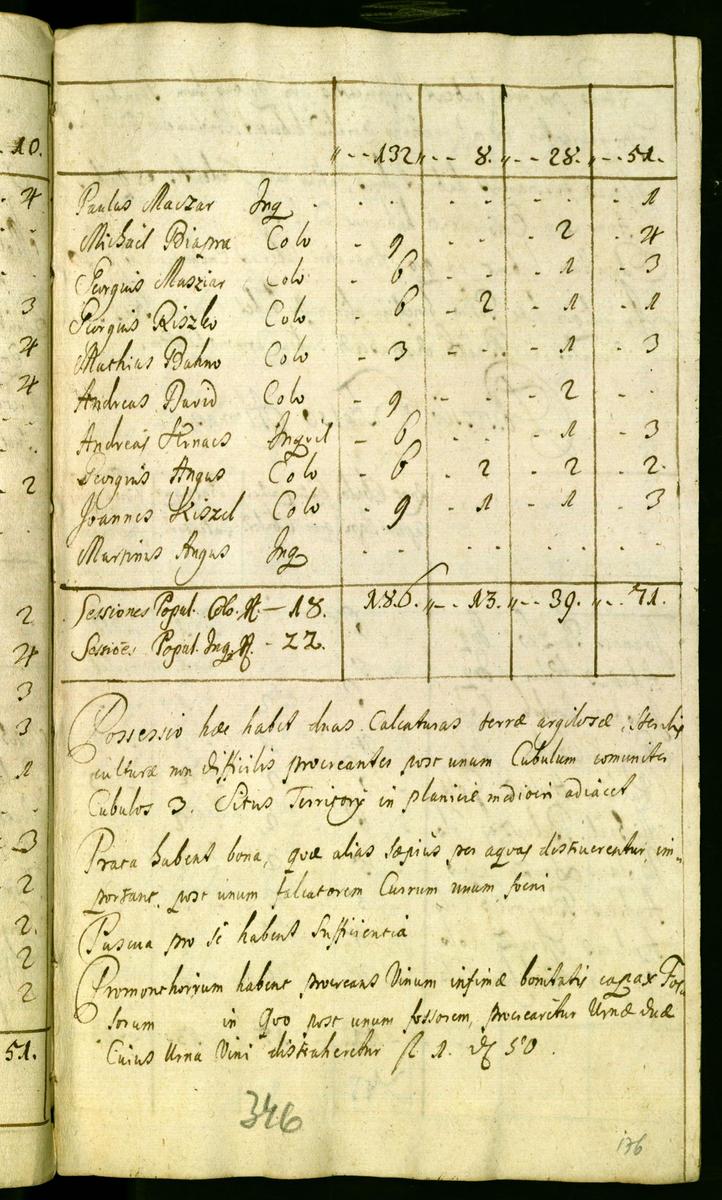 10. „ - - 132 „ - - 8. „ - - 28. „ - - 51.
4 Paulus Maczar Inq - . . . . - . 1
Michael Colo - 9 . . - 2 - 4
Georgius Masziar Colo - 6 - . - 1 - 3
3 Georgius Riszko Colo - 6 - 2 - 1 - 1
4 Mathias Bahno Colo - 3 - . . - 1 - 3
4 Andreas David Colo - 9 - . - 2 - .
Andreas Hinacs Inqvil - 6 . . - 1 - 3
2 Georgius Angus Colo - 6 - 2 - 2 - 2.
Joannes Kiszel Colo - 9 - 1 - 1 - 3
Martinus Angus Inq - . - . . . . .
2 Sessiones Popul. Colo. # - 18. 186 „ - - 13. „ - - 39. „ - - 71.
4 Sessiões Popul. Inq. # - 22.
3
3 Possessio hæc habet duas Calcaturas terræ argilosæ, sterilis
1 culturæ non difficilis procreantes post unum Cubulum comuniter
Cubulos 3. Situs Territorÿ in planicie mediocri adiacet
3 Prata habent bona, quæ alias sæpius per aquas distruerentur, im-
2 portant, post unum falcatorem Currum unum foeni
2. Pascua pro se habent Sufficientia
2
2 Promonthorium habent procreans Vinum infimæ bonitatis capax Fos
sorum in Quo post unum fossorem, procrearetur Urnæ duæ
51. Cuius Urna Vini distraheretur fl 1. d 50.
346
176